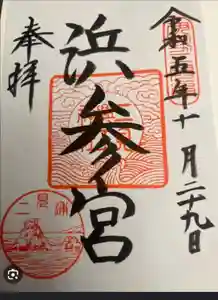 令和五年十月二十九日
浜参宮
奉拝
二見浦